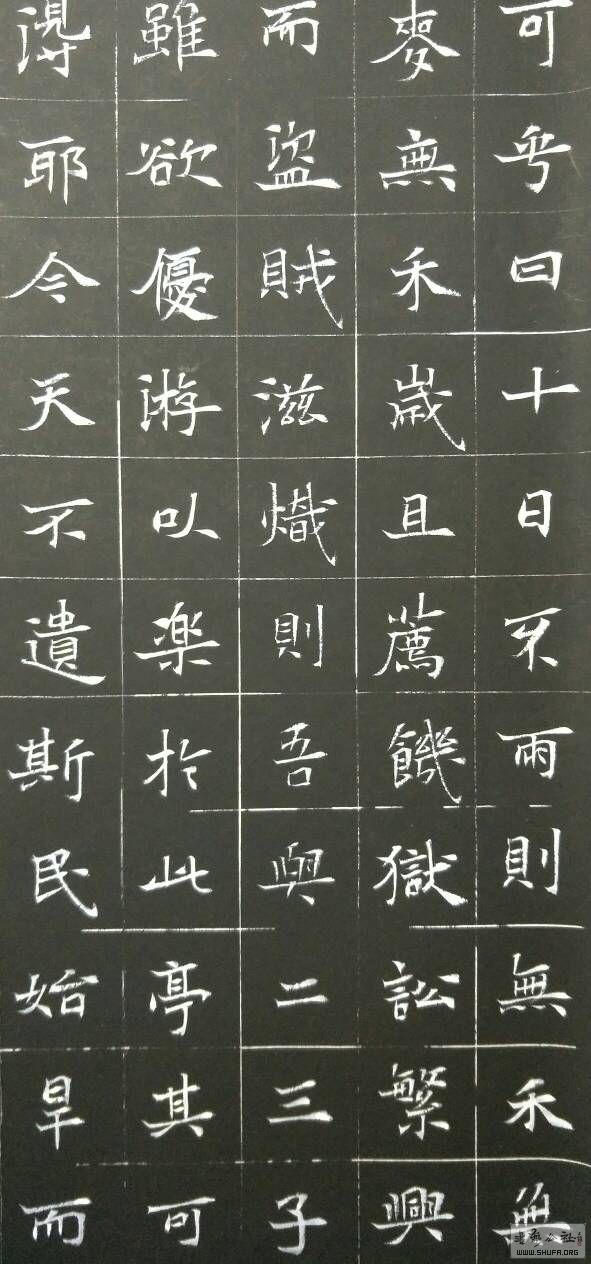 可乎曰十日不雨則無禾無
麥無禾歲且薦饑獄訟繁興
而盜賊滋熾則吾與二三子
雖欲優游以樂於此亭其可
得耶今天不遺斯民始旱而
書藝公社
WWW.SHUFA.ORG